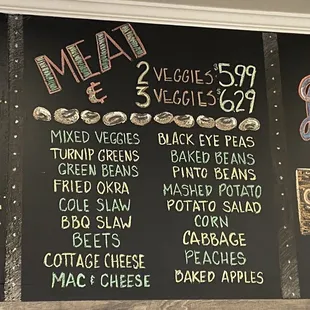 MEAT
&
2 VEGGIES $5.99
3 VEGGIES $6.29
MIXED VEGGIES
TURNIP GREENS
GREEN BEANS
FRIED OKRA
COLE SLAW
BBQ SLAW
BEETS
COTTAGE CHEESE
MAC & CHEESE
BLACK EYE PEAS
BAKED BEANS
PINTO BEANS
MASHED POTATO
POTATO SALAD
CORN
CABBAGE
PEACHES
BAKED APPLES